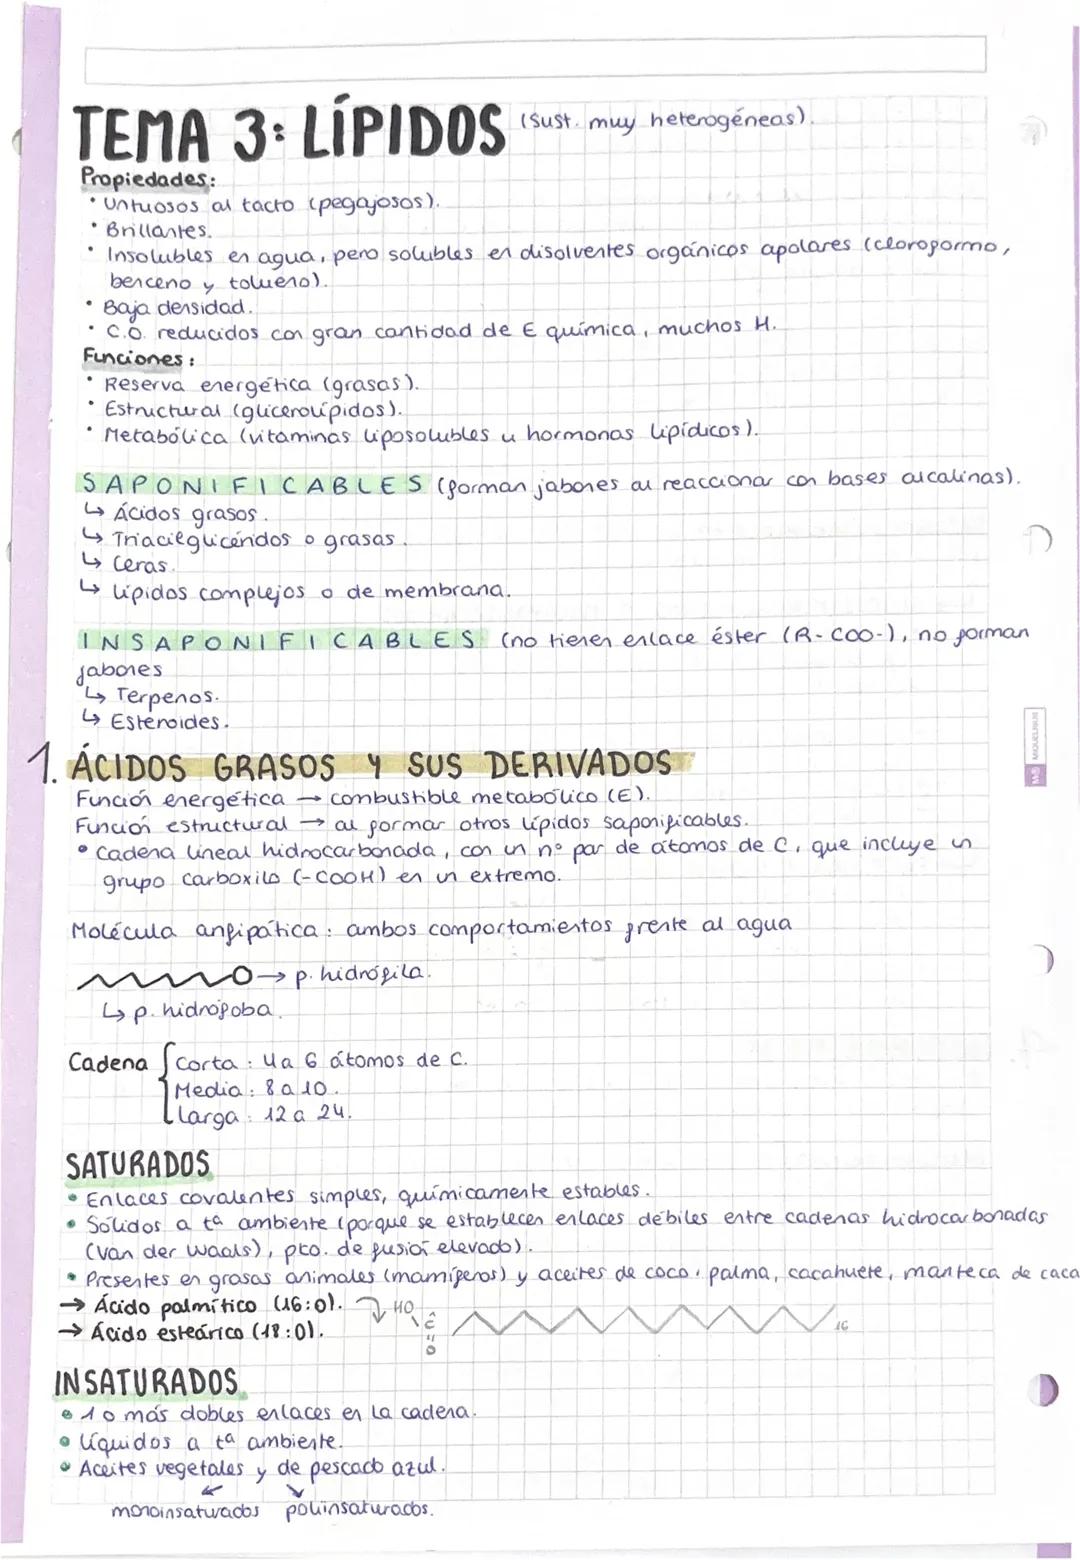 TEMA 3: LÍPIDOS (Sust. muy heterogéneas).
Propiedades:
• Untuosos al tacto (pegajosos).
• Brillantes.
• Insolubles en agua, pero solubles en disolventes orgánicos apolares (cloroformo,
benceno y tolueno).
• Baja densidad.
• C.O. reducidos con gran cantidad de E química, muchos H.
Funciones:
• Reserva energética (grasas).
• Estructural (glicerolípidos).
• Metabólica (vitaminas liposolubles u hormonas lipídicos).
SAPONIFICABLES (forman jabones al reaccionar con bases alcalinas).
↳ Ácidos grasos.
↳ Triacilglicéridos o grasas.
↳ Ceras.
↳ Lípidos complejos o de membrana.
INSAPONIFICABLES (no tienen enlace éster (R-COO-), no forman
jabones
↳ Terpenos.
↳ Esteroides.
MIQUELRIUS
1. ÁCIDOS GRASOS Y SUS DERIVADOS
Función energética → combustible metabólico (E).
Función estructural → al formar otros lípidos saponificables.
• Cadena lineal hidrocarbonada, con un nº par de átomos de C, que incluye un
grupo carboxilo (-COOH) en un extremo.
Molécula anfipática: ambos comportamientos frente al agua
→ p. hidrófila.
↳ p. hidrófoba.
Cadena { Corta: 4 a 6 átomos de C.
Media: 8 a 10.
Larga: 12 a 24.
SATURADOS
• Enlaces covalentes simples, químicamente estables.
• Sólidos a tª ambiente (porque se establecen enlaces débiles entre cadenas hidrocarbonadas
(Van der Waals), pto. de fusión elevado).
• Presentes en grasas animales (mamíferos) y aceites de coco, palma, cacahuete, manteca de caca
→ Ácido palmítico (16:0). HO C=O 16
→ Ácido esteárico (18:0).
INSATURADOS
• 1 o más dobles enlaces en la cadena.
• Líquidos a tª ambiente.
• Aceites vegetales y de pescado azul.
monoinsaturados poliinsaturados.